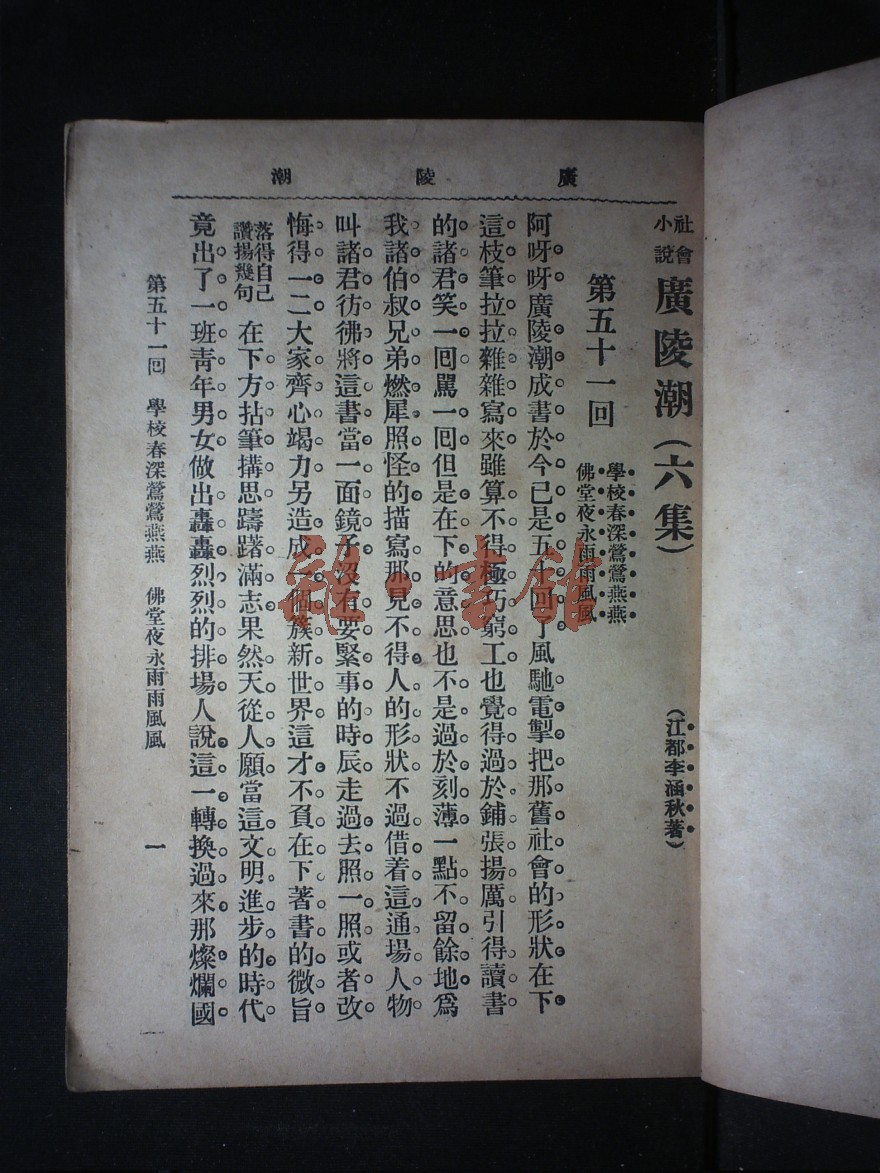 廣陵潮
社會小說 廣陵潮（六集） （江都李涵秋著）
第五十一回 學校春深鶯鶯燕燕
佛堂夜永雨雨風風
阿呀呀廣陵潮成書於今已是五十回了風馳電掣把那舊社會的形狀在下
這枝筆拉拉雜雜寫來雖算不得極巧窮工也覺得過於鋪張揚厲引得讀書
的諸君笑一回罵一回但是在下的意思也不是過於刻薄一點不留餘地爲
我諸伯叔兄弟燃犀照怪的描寫那見不得人的形狀不過借着這通場人物
叫諸君彷彿將這書當一面鏡子沒有要緊事的時辰走過去照一照或者改
悔得一二大家齊心竭力另造成一個簇新世界這才不負在下著書的微旨
落得自己讚揚幾句 在下方拈筆搆思躊躇滿志果然天從人願當這文明進步的時代
竟出了一班靑年男女做出轟轟烈烈的排場人說這一轉換過來那燦爛國
第五十一回 學校春深鶯鶯燕燕 佛堂夜永雨雨風風 一
龍書館